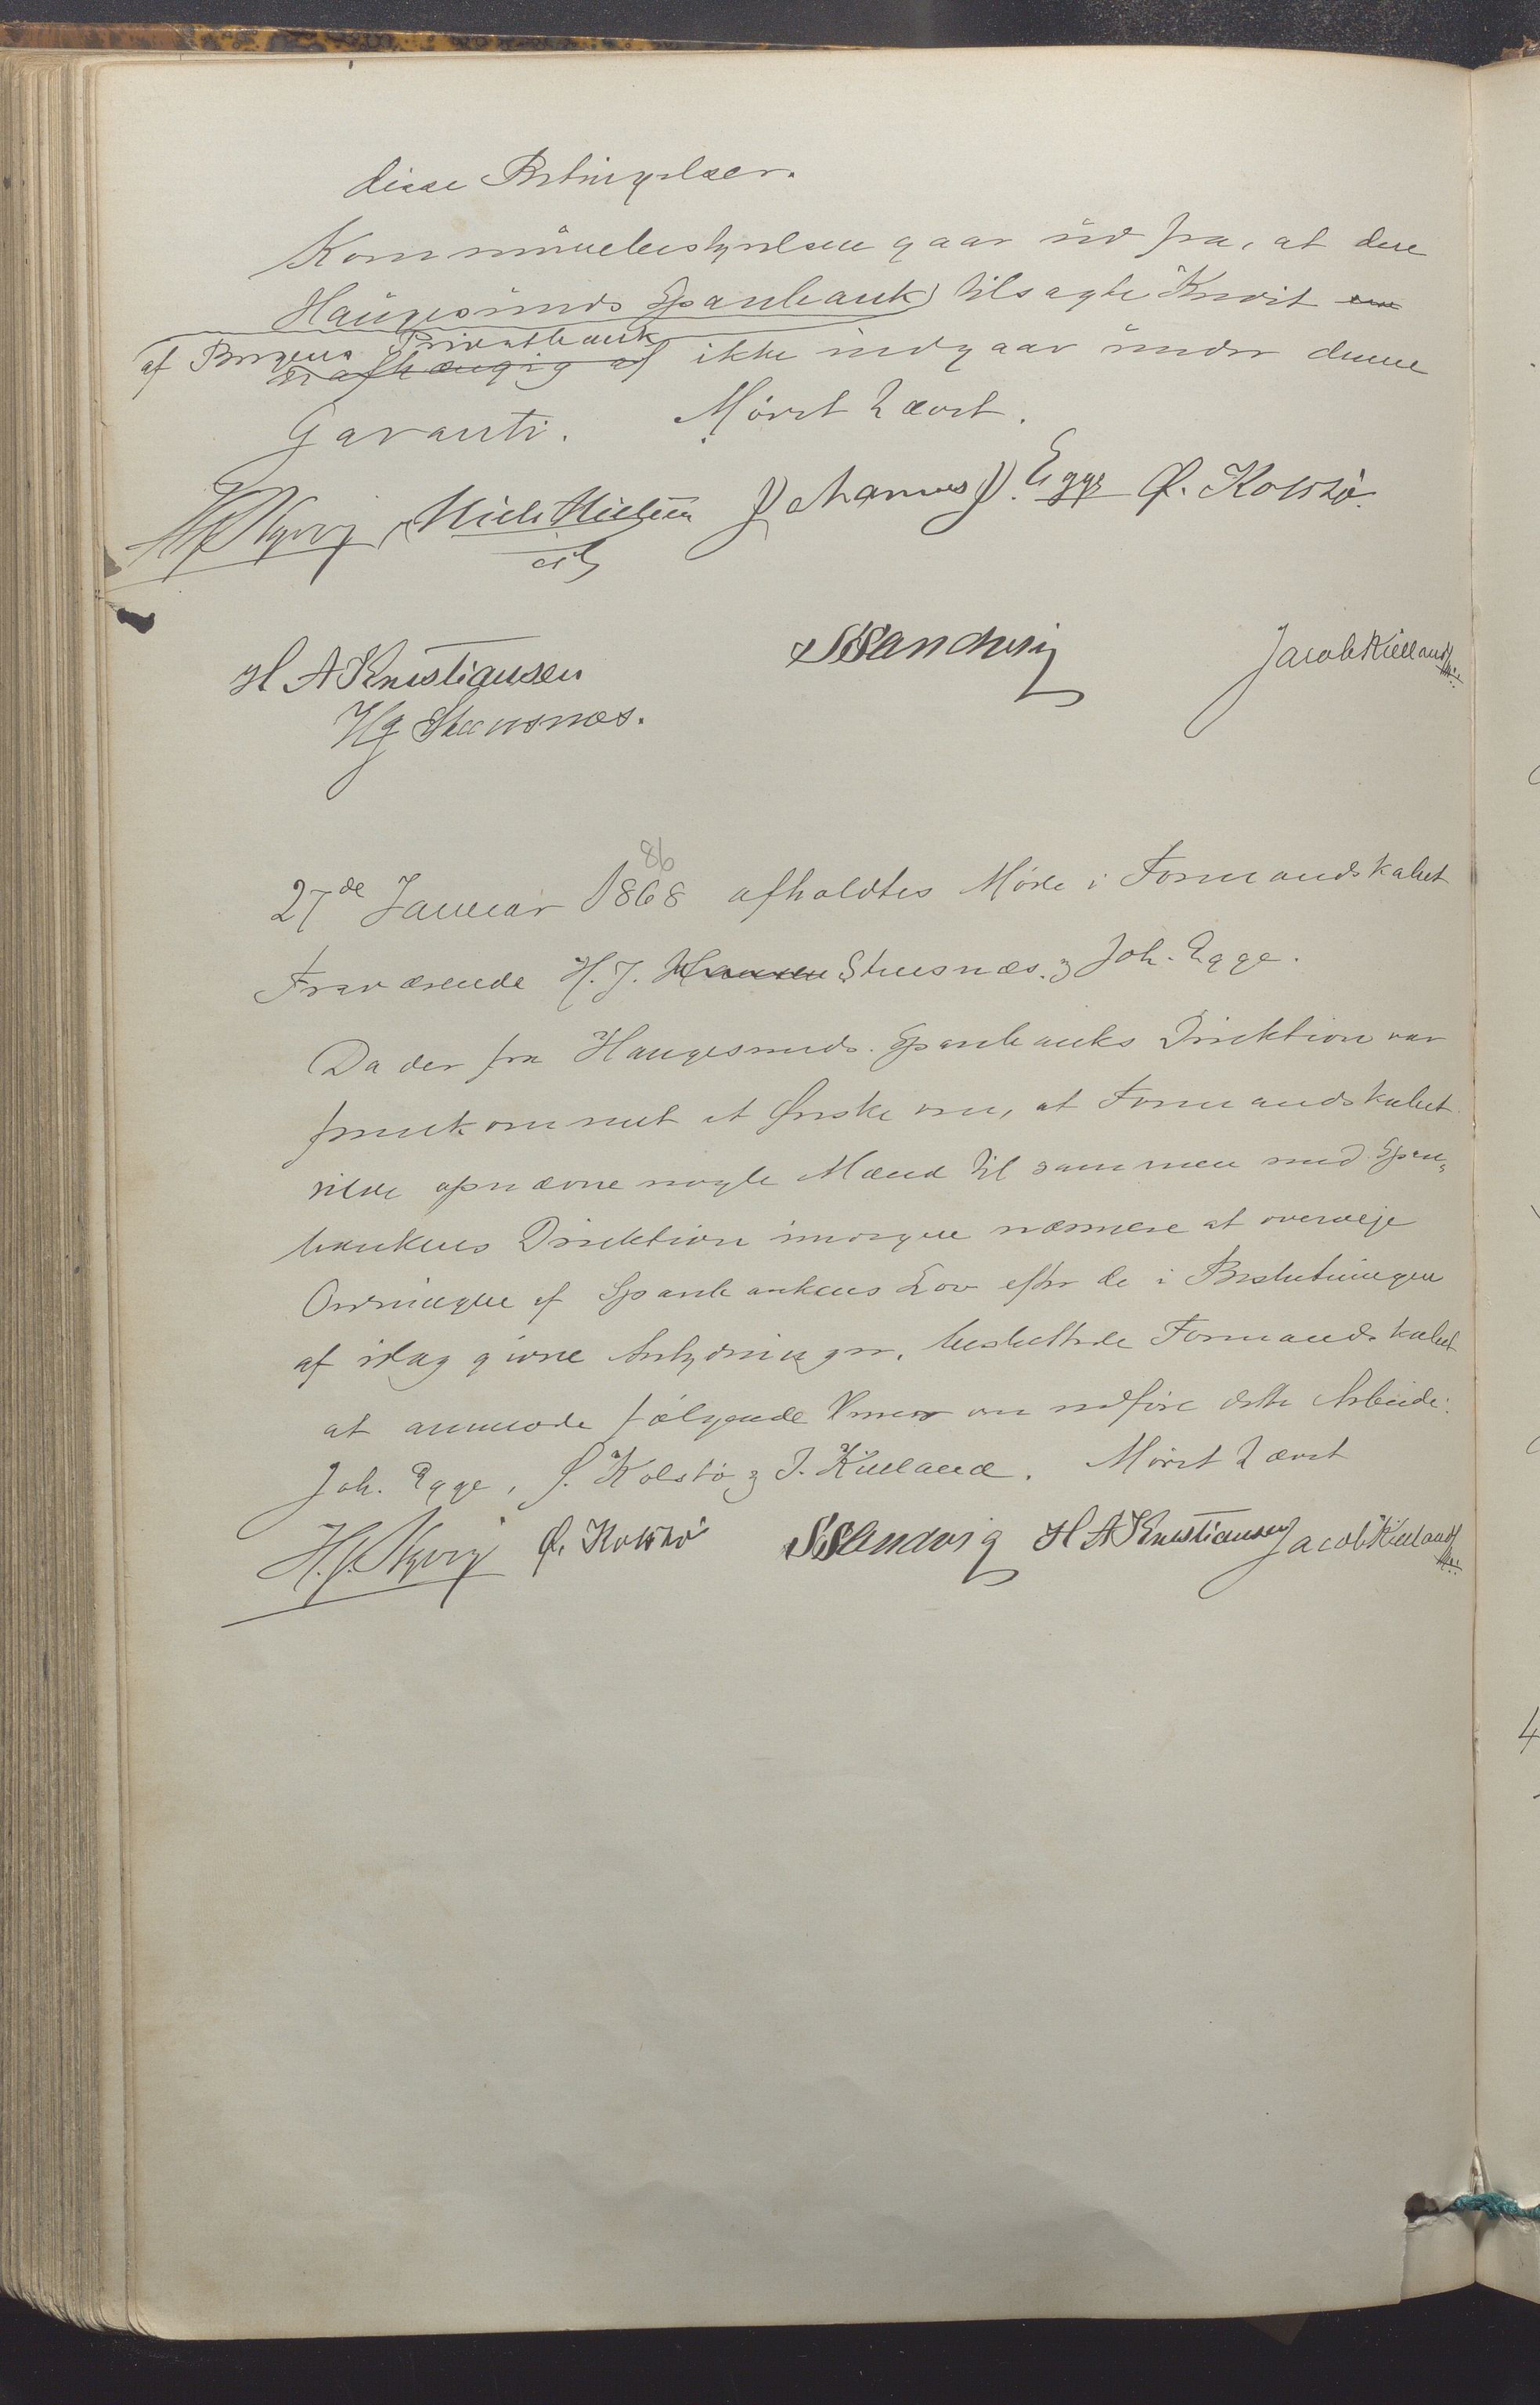 disse Betingelser.
Kommunebestyrelsen gaar ud fra, at den
Haugesunds Sparebank tilsagte Kredit
af Bergens Privatbank
er afhængig af ikke indgaar under denne
Garanti. Mødet hævet.
Niels Nielsen Johannes J. Egge Ø. Kolstø
H A Kristiansen S S Sandvig Jacob Kielland
H J Stuesnæs.
86
27de Januar 1868 afholdtes Møde i Formandskabet
Fraværende H. J. Hansen Stuesnæs. og Joh. Egge.
Da der fra Haugesunds Sparebanks Direktion var
fremkommet et Ønske om, at Formandskabet
vilde opnævne nogle Mænd til sammen med Spare-
bankens Direktion imorgen nærmere at overveje
Ordningen af Sparebankens Lov efter de i Beslutningen
af idag givne Antydninger, besluttede Formandskabet
at anmode følgende om udføre dette Arbeide:
Joh. Egge, Ø. Kolstø og J. Kielland. Mødet hævet
Ø. Kolstø S S Sandvig H A Kristiansen Jacob Kielland